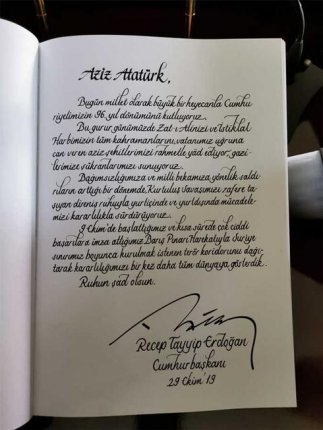 Aziz Atatürk,
Bugün millet olarak büyük bir heyecanla Cumhu
riyetimizin 96. yıl dönümünü kutluyoruz.
Bu gurur günümüzde Zat-ı Alinizi ve İstiklal
Harbimizin tüm kahramanlarını, vatanımız uğruna
can veren aziz şehitlerimizi rahmetle yâd ediyor, gazi
lerimize şükranlarımızı sunuyoruz.
Bağımsızlığımıza ve milli bekamıza yönelik saldı
rıların arttığı bir dönemde, Kurtuluş Savaşımızı zafere ta
şıyan direniş ruhuyla yurtiçinde ve yurtdışında mücadele
mizi kararlılıkla sürdürüyoruz.
9 Ekim'de başlattığımız ve kısa sürede çok ciddi
başarılara imza attığımız Barış Pınarı Harekatıyla Suriye
sınırımız boyunca kurulmak istenen terör koridorunu dağı
tarak kararlılığımızı bir kez daha tüm dünyaya gösterdik.
Ruhun şad olsun.
Recep Tayyip Erdoğan
Cumhurbaşkanı
29 Ekim'19